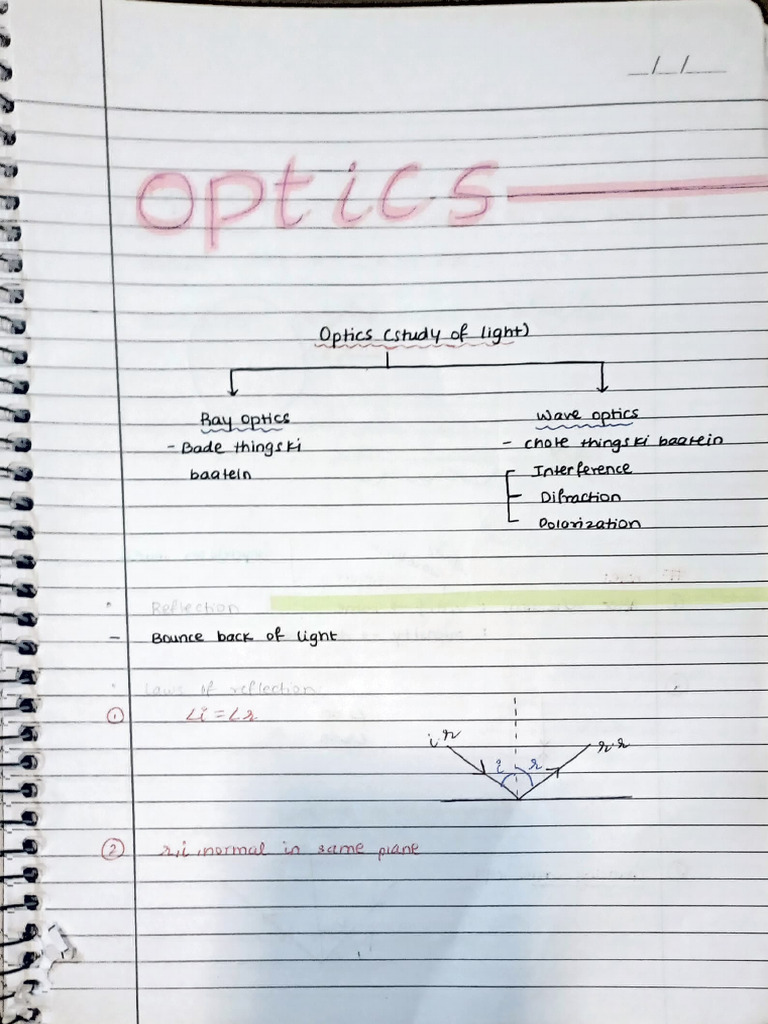 _/_/_
optics
Optics (study of light)
Ray optics
- Bade things ki
baatein
Wave optics
- chote things ki baatein
Interference
Difraction
Polarization
• Reflection
- Bounce back of light
• Laws of reflection
① ∠i = ∠r
ir
rr
i r
② r, i, normal in same plane